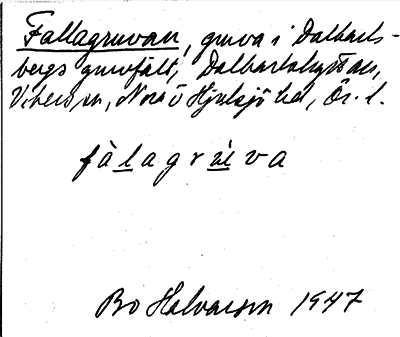 Fallagruvan, gruva i Dalkarls-
bergs gruvfält, Dalkarlshyttan,
Vikers sn, Nora o Hjulsjö hd, Ör. l.
fàlagrúva
Bo Halvarson 1947